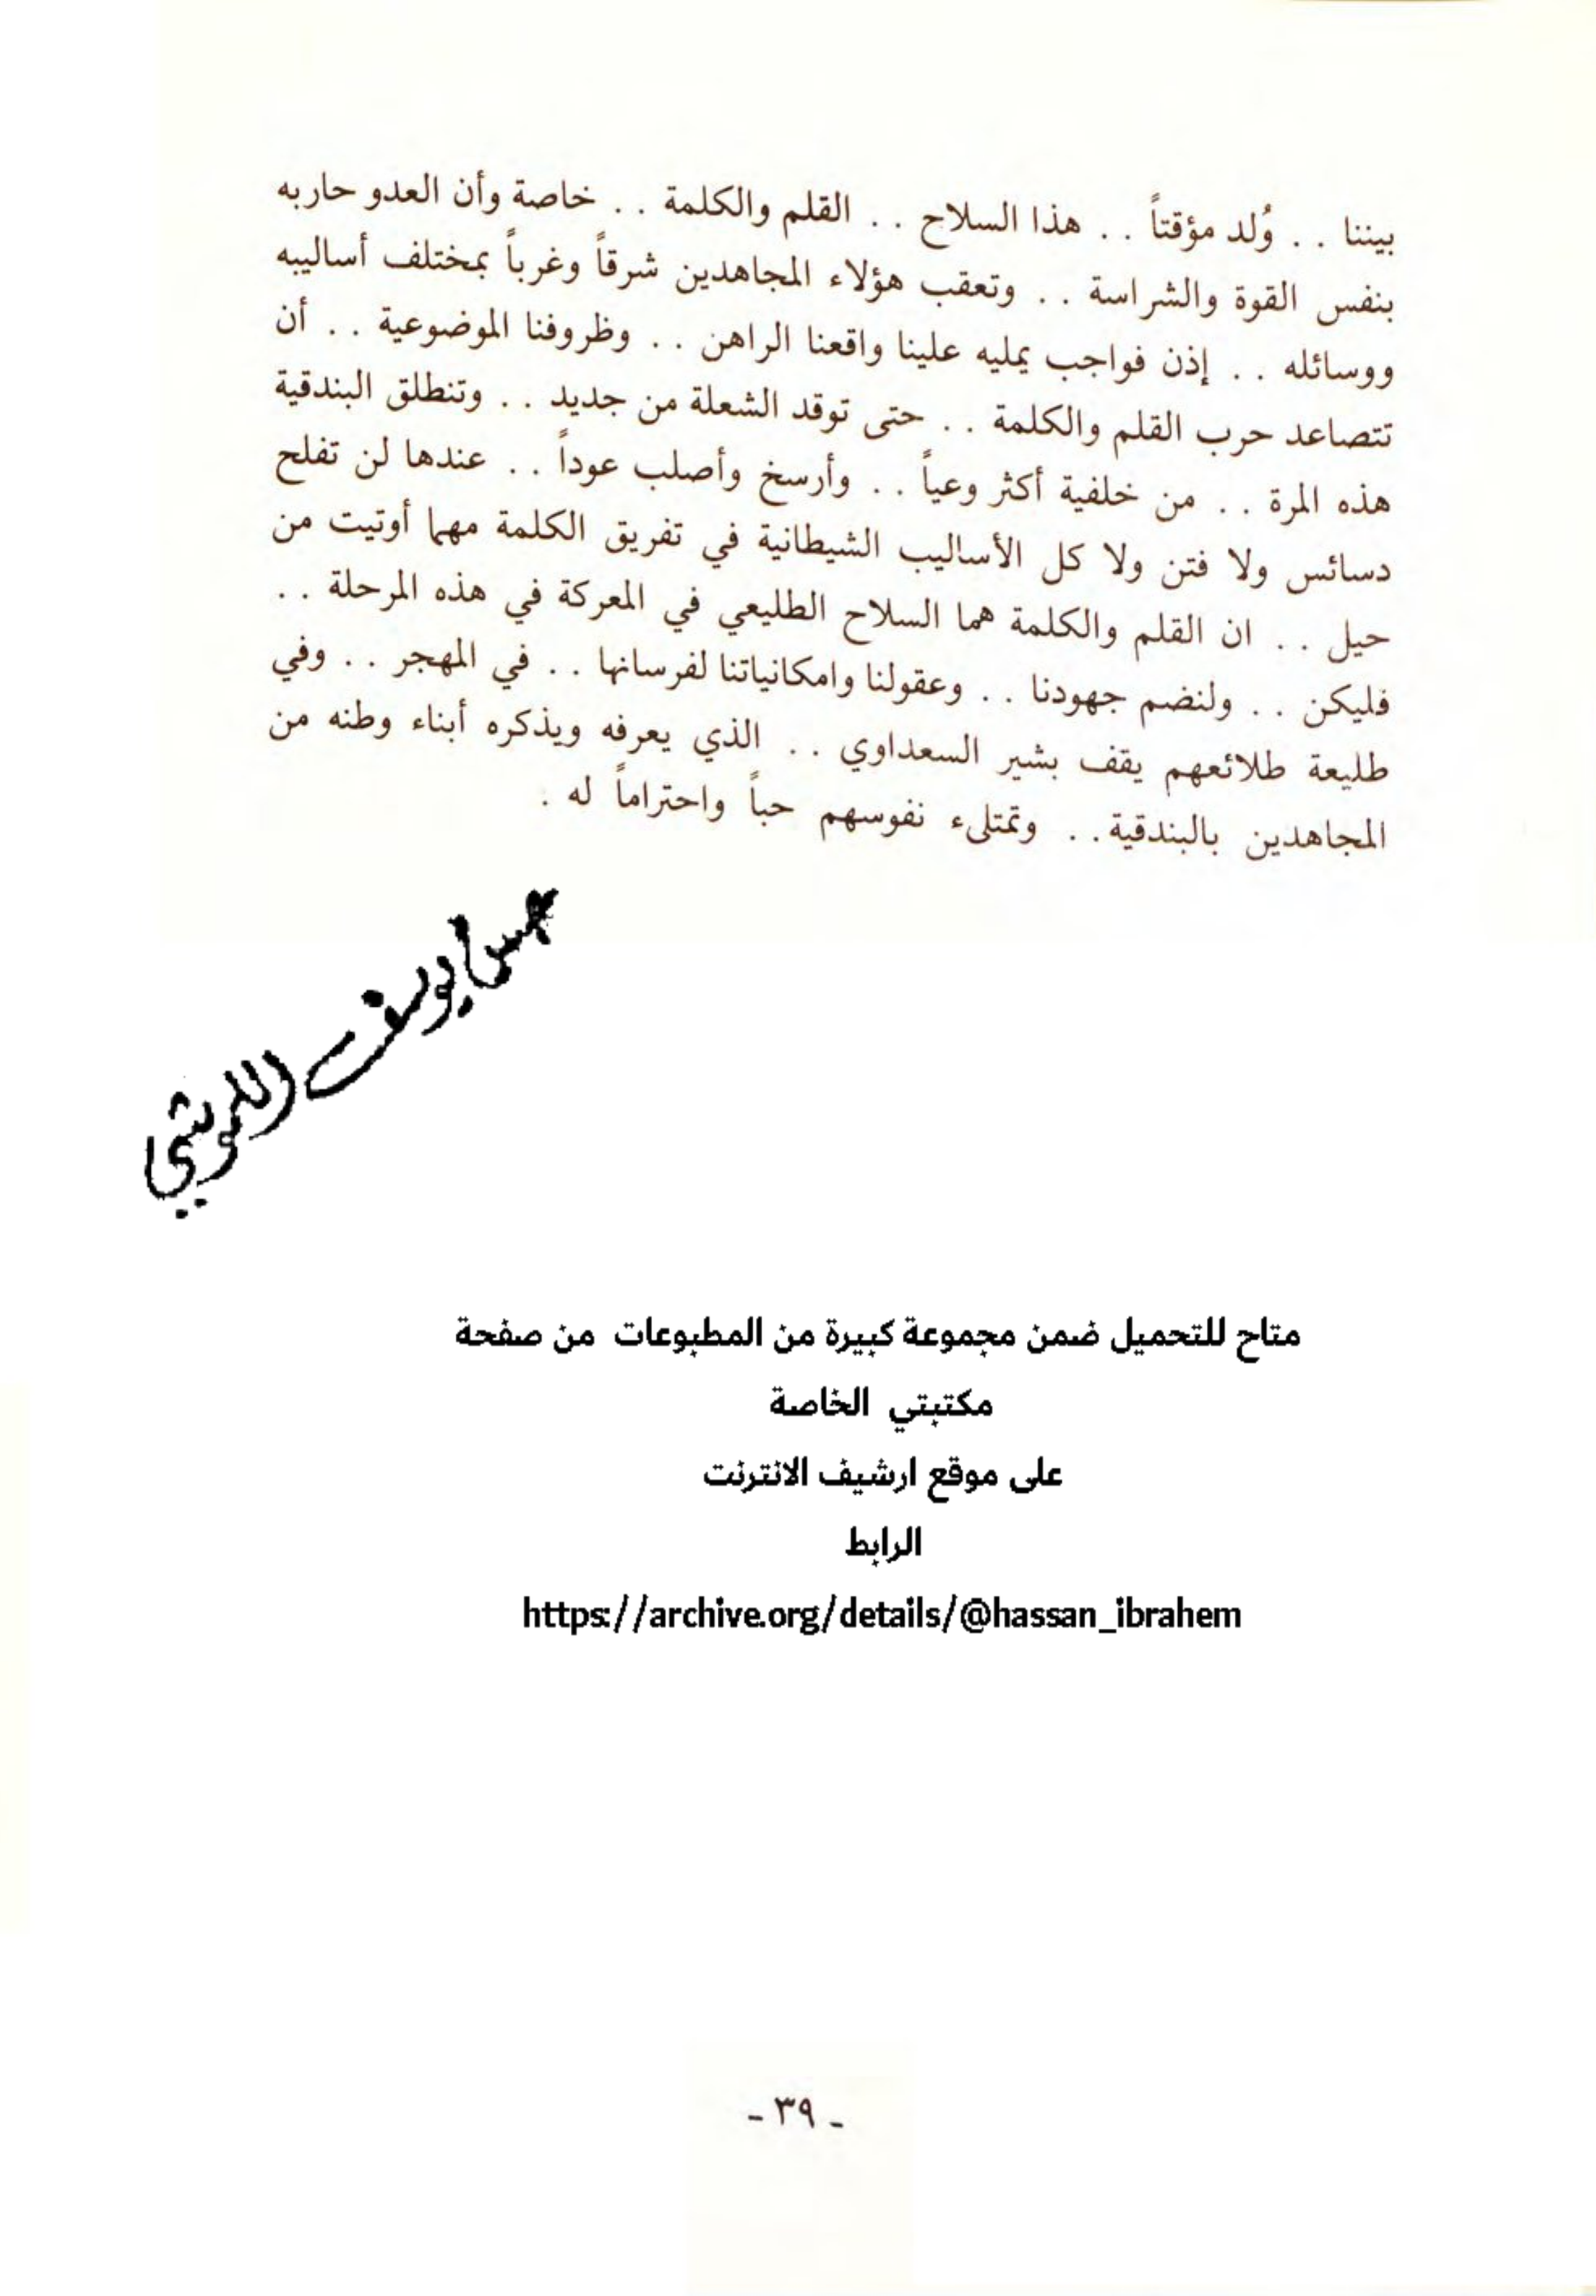 بيننا . . وُلد مؤقتاً . . هذا السلاح . . القلم والكلمة . . خاصة وأن العدو حاربه
بنفس القوة والشراسة . . وتعقب هؤلاء المجاهدين شرقاً وغرباً بمختلف أساليبه
ووسائله . . إذن فواجب يمليه علينا واقعنا الراهن . . وظروفنا الموضوعية . . أن
تتصاعد حرب القلم والكلمة . . حتى توقد الشعلة من جديد . . وتنطلق البندقية
هذه المرة . . من خلفية أكثر وعياً . . وأرسخ وأصلب عوداً . . عندها لن تفلح
دسائس ولا فتن ولا كل الأساليب الشيطانية في تفريق الكلمة مهما أوتيت من
حيل . . ان القلم والكلمة هما السلاح الطليعي في المعركة في هذه المرحلة . .
فليكن . . ولنضم جهودنا . . وعقولنا وامكانياتنا لفرسانها . . في المهجر . . وفي
طليعة طلائعهم يقف بشير السعداوي . . الذي يعرفه ويذكره أبناء وطنه من
المجاهدين بالبندقية . . وتمتلىء نفوسهم حباً واحتراماً له .
يوسف
متاح للتحميل ضمن مجموعة كبيرة من المطبوعات من صفحة
مكتبتي الخاصة
على موقع ارشيف الانترنت
الرابط
https://archive.org/details/@hassan_ibrahem
- ٣٩ -